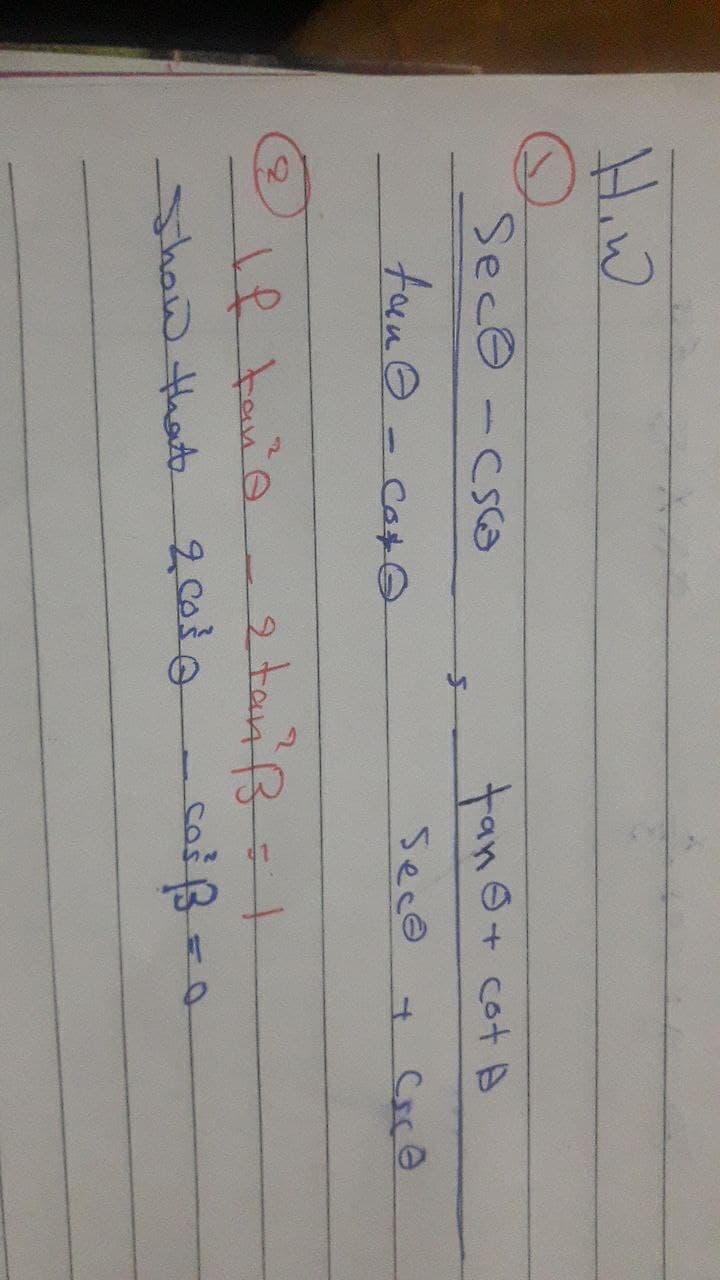 H.W
① secθ - cscθ / tanθ - cotθ = tanθ + cotθ / secθ + cscθ
② If tan²θ - 2tan²β = 1
show that 2cos²θ - cos²β = 0